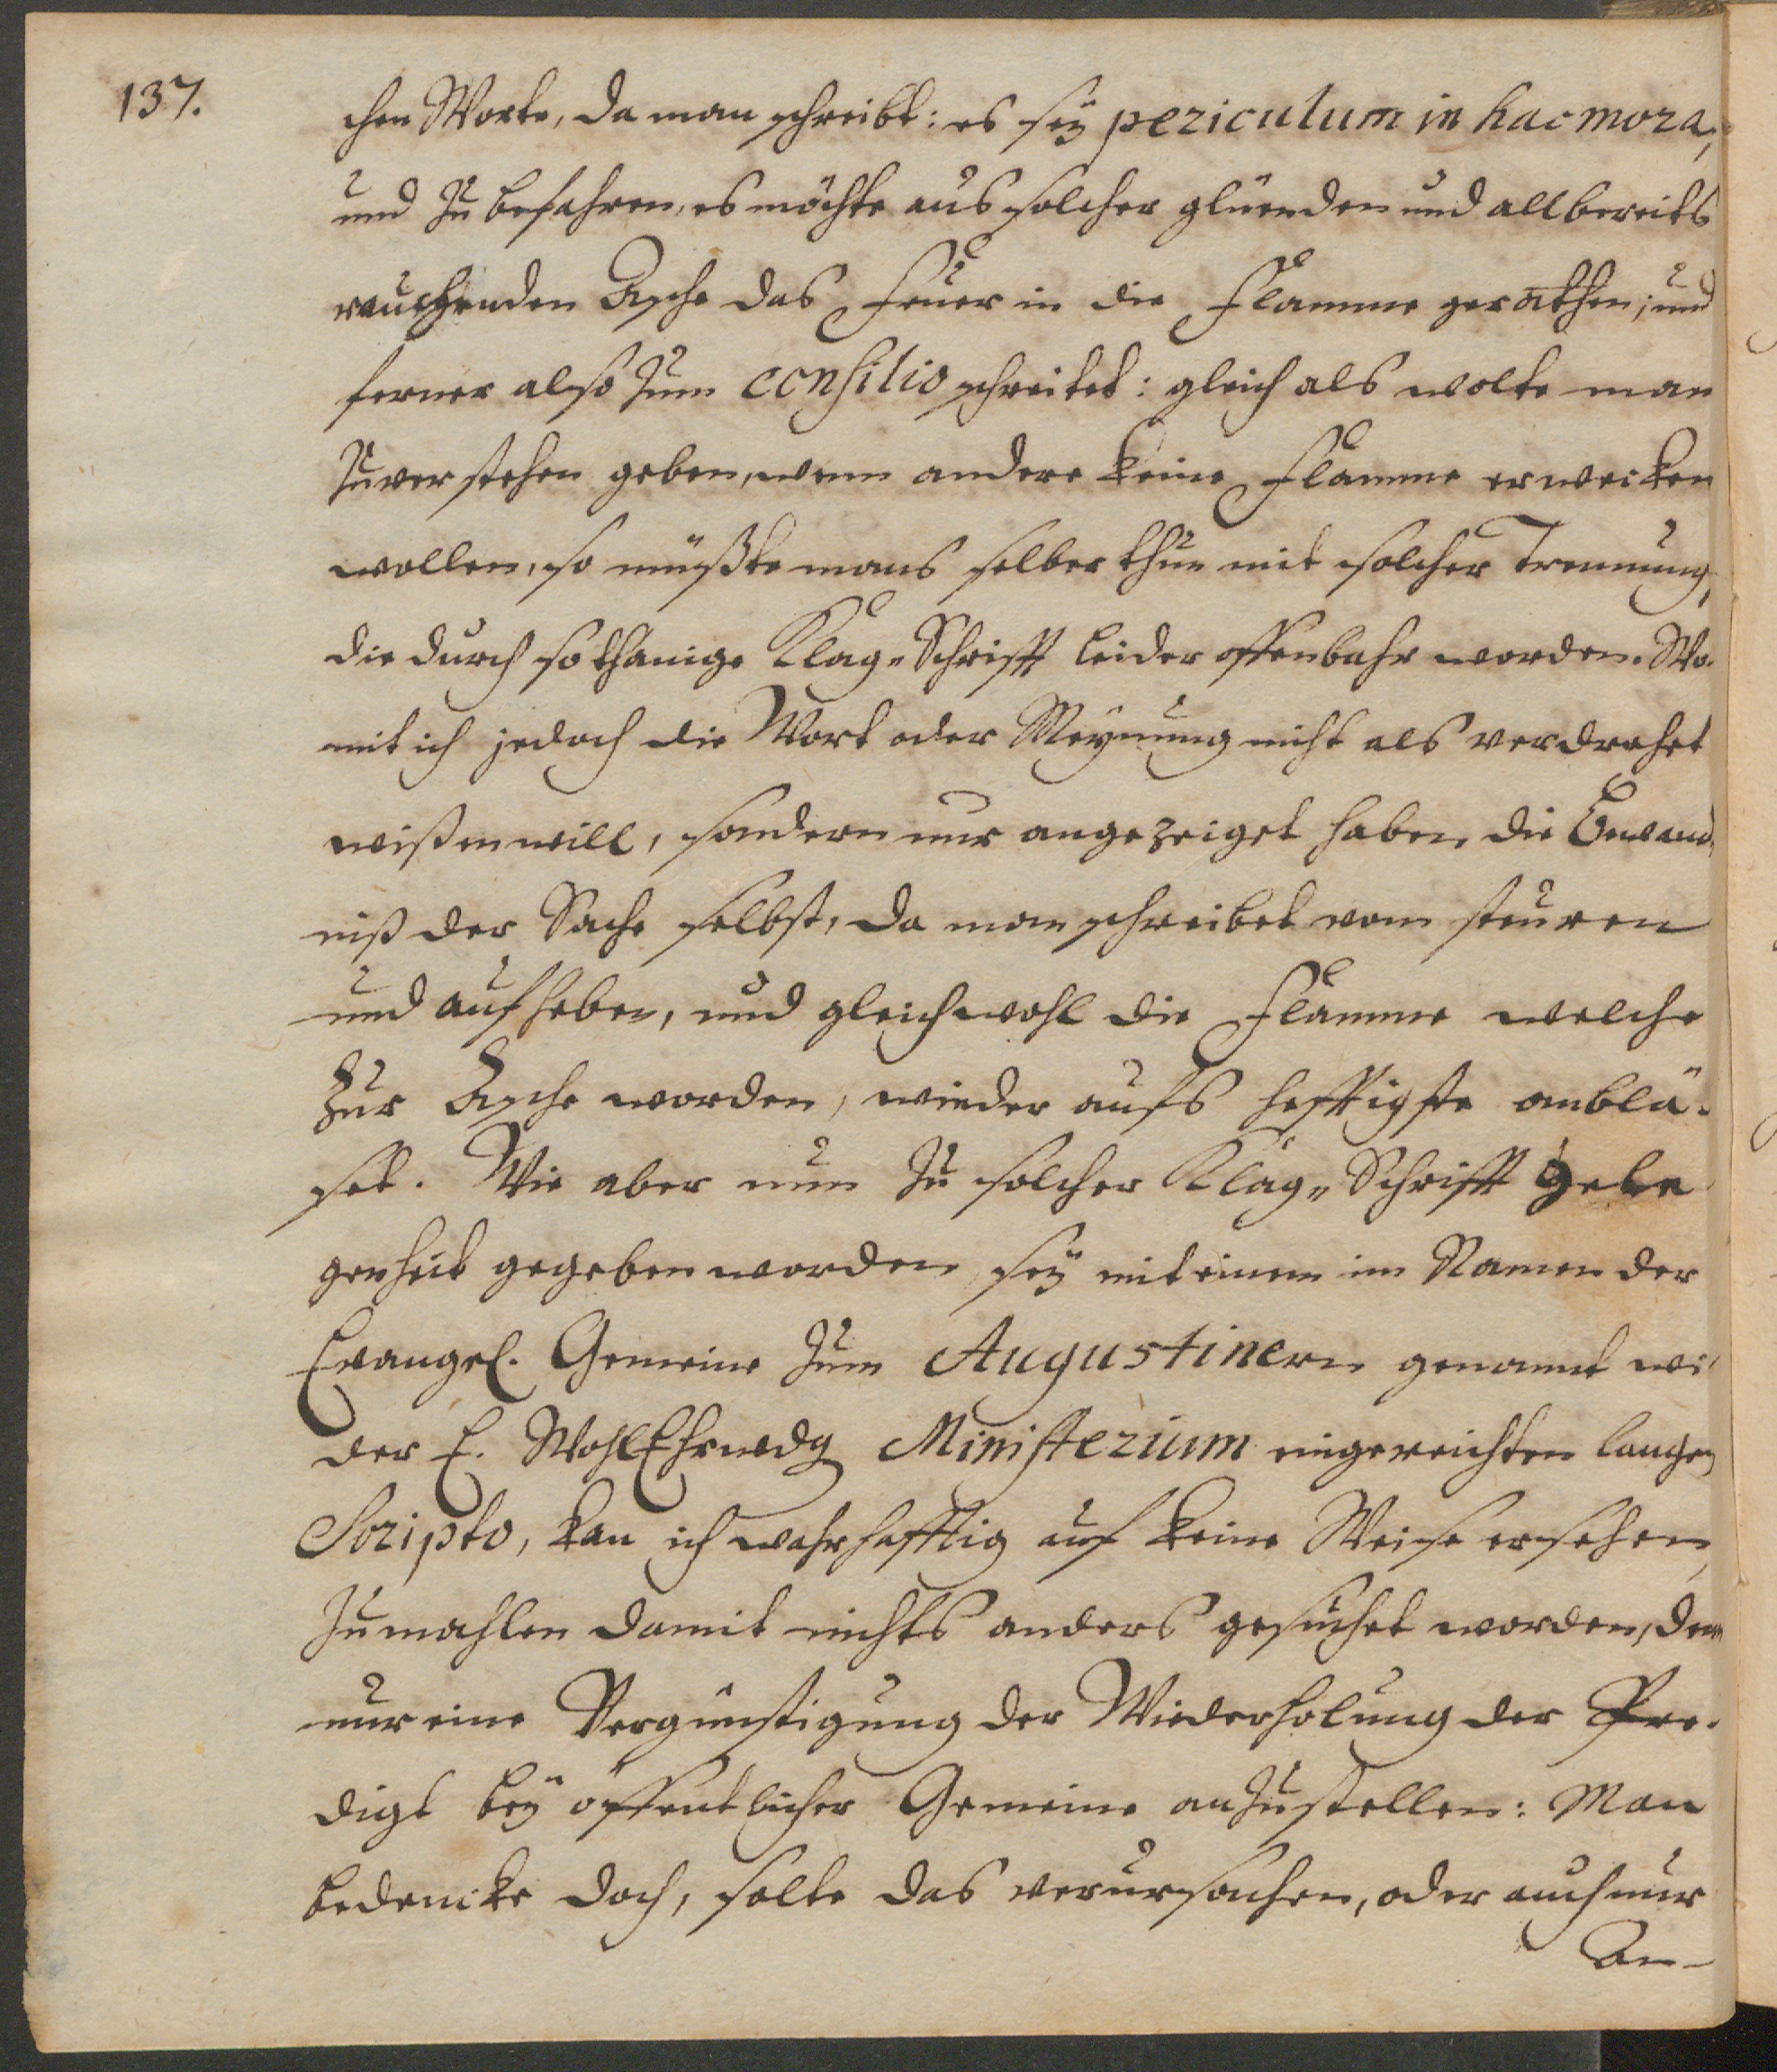 137.
chen Worte, da man schreibt: es sey periculum in hac mora,
und zu befahren, es möchte aus solcher glüenden und allbereits
rauchenden Asche das Feuer in die Flamme gerathen; und
ferner also zum consilio schreitet: gleich als wolte man
zuverstehen geben, wenn andere keine Flamme erwecken
wollen, so müßte mans selber thun mit solcher Trennung,
die durch sothanige Klag-Schrifft leider offenbahr worden. Wo-
mit ich jedoch die Wort oder Meynung nicht als verdrehet
wißen will, sondern nur angezeiget haben die Bewand-
niß der Sache selbst, da man schreibet vom steuren
und aufheben, und gleichwohl die Flamme welche
zur Asche worden, wieder aufs hefftigste anblä-
set. Wie aber nun zu solcher Klag-Schrifft Gele
genheit gegeben worden sey mit einem im Namen der
Evangel. Gemeine zum Augustinern genannt wi-
der E. WohlEhrwdg Ministerium eingereichten langen
Scripto, kan ich wahrhafftig auf keine Weise ersehen,
zumahlen damit nichts anders gesuchet worden, denn
nur eine Vergünstigung der Wiederholung der Pre-
digt bey öffentlicher Gemeine anzustellen: Man
bedencke doch, solte das verursachen, oder auch nur
An-